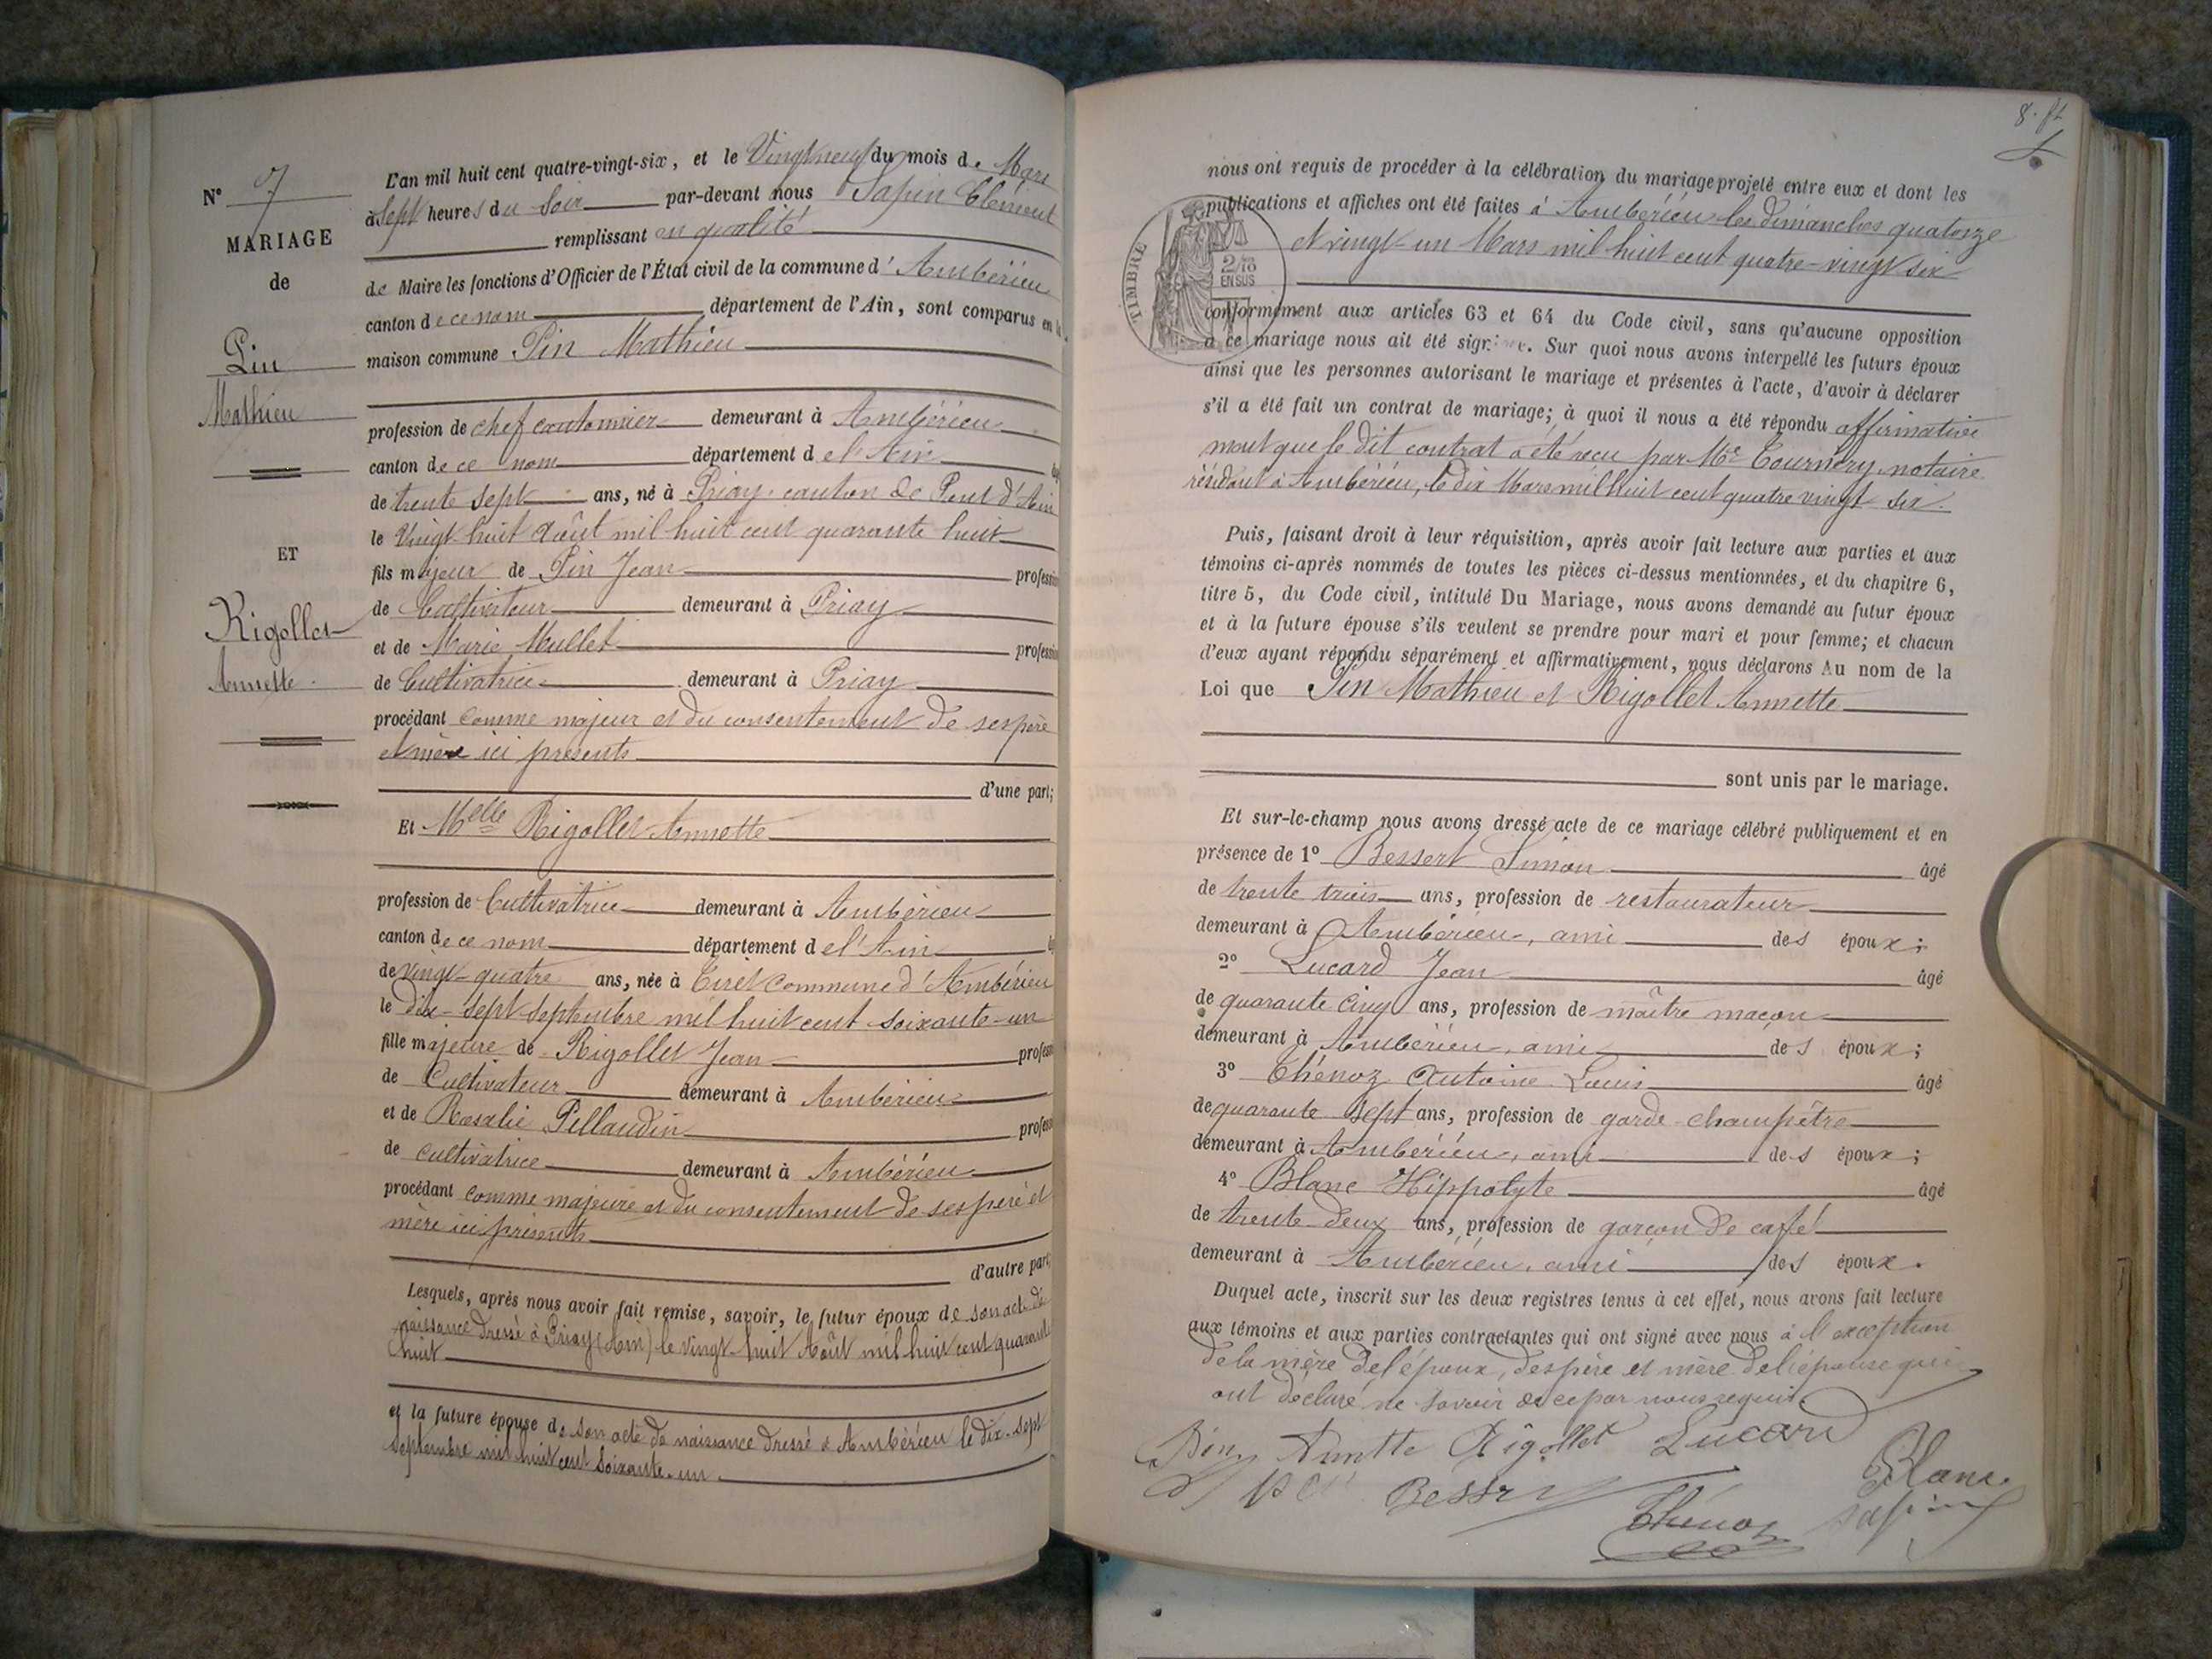 N° 7
MARIAGE
de
Pin
Mathieu
ET
Rigollet
Annette
L'an mil huit cent quatre-vingt-six, et le Vingt neuf du mois de Mars
à Sept heures du Soir par-devant nous Sapin Clément
remplissant en qualité
de Maire les fonctions d'Officier de l'État civil de la commune d' Ambérieu
canton de ce nom département de l'Ain, sont comparus en la
maison commune Pin Mathieu
profession de chef cantonnier demeurant à Ambérieu
canton de ce nom département de l'Ain
de trente sept ans, né à Priay canton de Pont d'Ain
le Vingt-huit Août mil huit cent quarante huit
fils majeur de Pin Jean profession
de Cultivateur demeurant à Priay
et de Marie Mullet profession
de Cultivatrice demeurant à Priay
procédant comme majeur et du consentement de ses père
et mère ici présents
d'une part;
Et Melle Rigollet Annette
profession de Cultivatrice demeurant à Ambérieu
canton de ce nom département de l'Ain
de vingt-quatre ans, née à Tiret commune d'Ambérieu
le dix-sept septembre mil huit cent soixante-un
fille majeure de Rigollet Jean profession
de Cultivateur demeurant à Ambérieu
et de Rosalie Pellaudin profession
de cultivatrice demeurant à Ambérieu
procédant comme majeure et du consentement de ses père et
mère ici présents
d'autre part;
Lesquels, après nous avoir fait remise, savoir, le futur époux de son acte de
naissance dressé à Priay (Ain) le vingt-huit Août mil huit cent quarante
huit
et la future épouse de son acte de naissance dressé à Ambérieu le dix-sept
septembre mil huit cent soixante-un
8.
nous ont requis de procéder à la célébration du mariage projeté entre eux et dont les
publications et affiches ont été faites à Ambérieu les dimanches quatorze
et vingt-un Mars mil huit cent quatre-vingt six
TIMBRE
2/10
EN SUS
conformément aux articles 63 et 64 du Code civil, sans qu'aucune opposition
à ce mariage nous ait été signifiée. Sur quoi nous avons interpellé les futurs époux
ainsi que les personnes autorisant le mariage et présentes à l'acte, d'avoir à déclarer
s'il a été fait un contrat de mariage; à quoi il nous a été répondu affirmative
ment que le dit contrat a été reçu par Me Tournery, notaire
résidant à Ambérieu, le dix Mars mil huit cent quatre vingt six.
Puis, faisant droit à leur réquisition, après avoir fait lecture aux parties et aux
témoins ci-après nommés de toutes les pièces ci-dessus mentionnées, et du chapitre 6,
titre 5, du Code civil, intitulé Du Mariage, nous avons demandé au futur époux
et à la future épouse s'ils veulent se prendre pour mari et pour femme; et chacun
d'eux ayant répondu séparément et affirmativement, nous déclarons Au nom de la
Loi que Pin Mathieu et Rigollet Annette
sont unis par le mariage.
Et sur-le-champ nous avons dressé acte de ce mariage célébré publiquement et en
présence de 1° Bessert Simon âgé
de trente trois ans, profession de restaurateur
demeurant à Ambérieu, ami des époux;
2° Lucard Jean âgé
de quarante cinq ans, profession de maître maçon
demeurant à Ambérieu, ami des époux;
3° Thénoz Antoine Louis âgé
de quarante sept ans, profession de garde-champêtre
demeurant à Ambérieu, ami des époux;
4° Blanc Hippolyte âgé
de trente-deux ans, profession de garçon de caffé
demeurant à Ambérieu, ami des époux.
Duquel acte, inscrit sur les deux registres tenus à cet effet, nous avons fait lecture
aux témoins et aux parties contractantes qui ont signé avec nous à l'exception
de la mère de l'époux, des père et mère de l'épouse qui
ont déclaré ne savoir de ce par nous requis.
Pin Annette Rigollet Lucard
Blanc
Thénoz Sapin